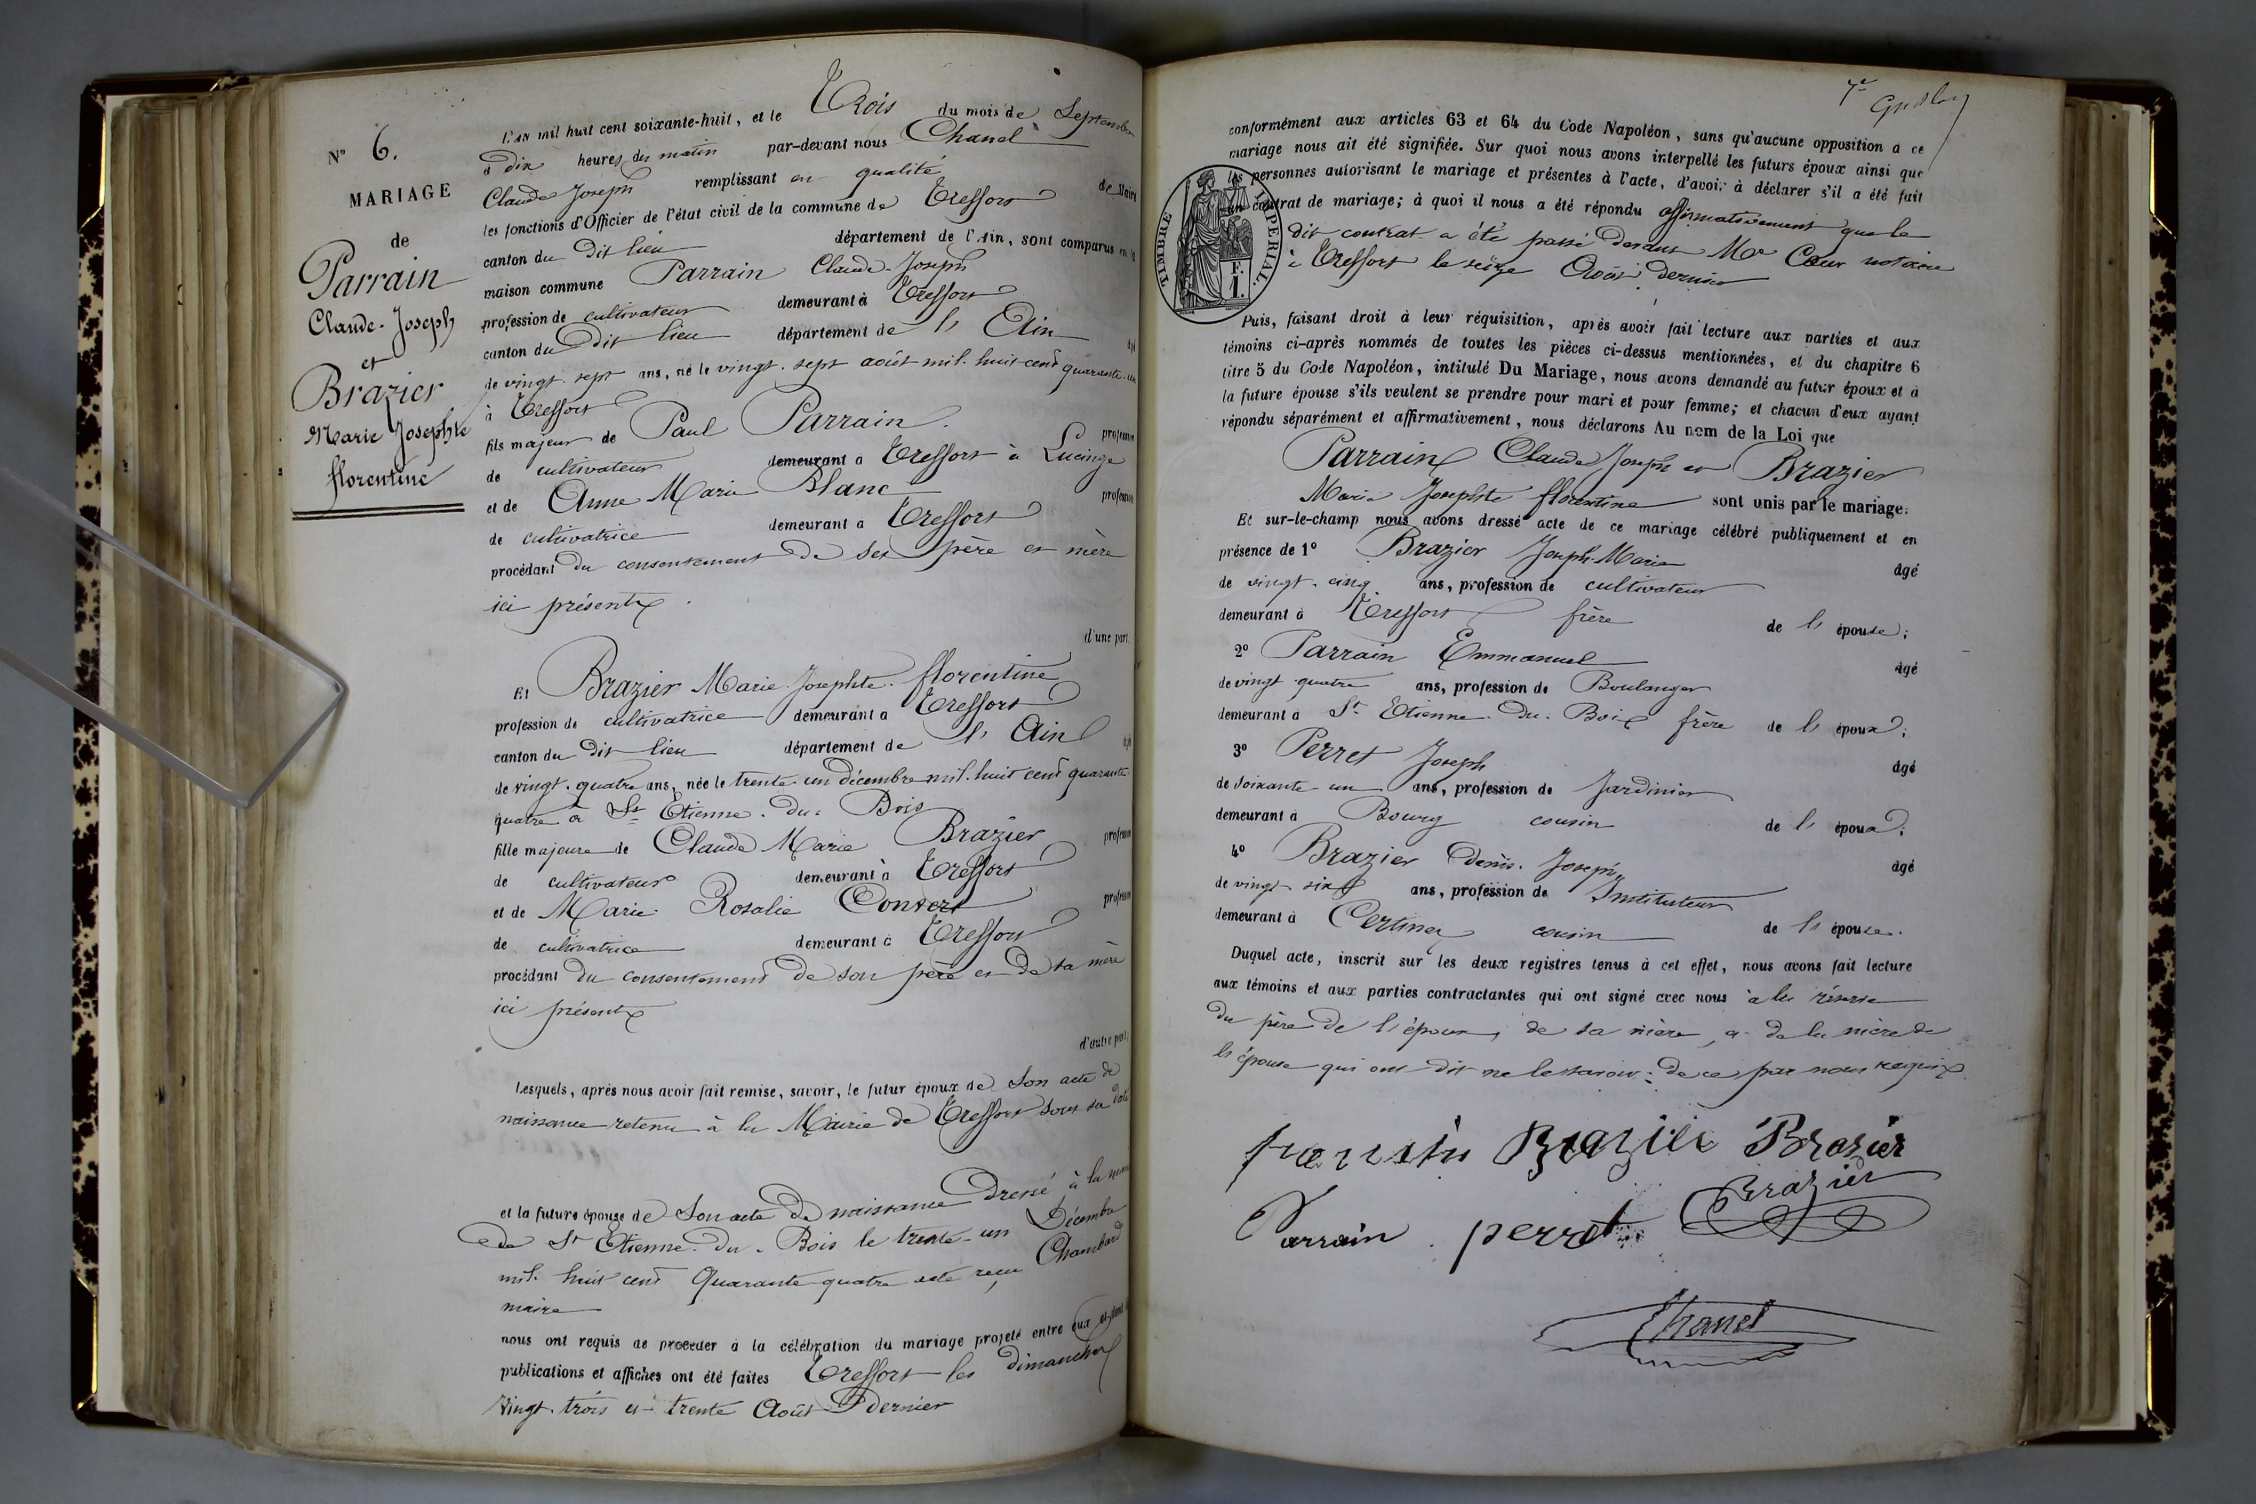 N° 6.
MARIAGE
de
Parrain
Claude-Joseph
et
Brazier
Marie Josephte
florentine
L'an mil huit cent soixante-huit, et le Trois du mois de Septembre
à dix heures du matin par-devant nous Chanel
Claude Joseph remplissant en qualité de Maire
les fonctions d'Officier de l'état civil de la commune de Treffort
canton du dit lieu département de l'Ain, sont comparus en la
maison commune Parrain Claude-Joseph
profession de cultivateur demeurant à Treffort
canton du dit lieu département de l'Ain âgé
de vingt-sept ans, né le vingt-sept août mil-huit cent quarante-un
à Treffort
fils majeur de Paul Parrain profession
de cultivateur demeurant à Treffort à Lucinge
et de Anne Marie Blanc profession
de cultivatrice demeurant à Treffort
procédant du consentement de ses père et mère
ici présents.
d'une part.
Et Brazier Marie-Josephte-florentine
profession de cultivatrice demeurant à Treffort
canton du dit lieu département de l'Ain âgé
de vingt-quatre ans, née le trente-un décembre mil-huit cent quarante-
quatre à St Etienne-du-Bois
fille majeure de Claude Marie Brazier profession
de cultivateur demeurant à Treffort
et de Marie Rosalie Convert profession
de cultivatrice demeurant à Treffort
procédant du consentement de son père et de sa mère
ici présents
d'autre part,
Lesquels, après nous avoir fait remise, savoir, le futur époux de son acte de
naissance retenu à la Mairie de Treffort sous sa date
et la future épouse de son acte de naissance Dressé à la mairie
de St Etienne-du-Bois le trente-un Décembre
mil-huit cent Quarante quatre acte reçu Chambard
maire
nous ont requis de procéder à la célébration du mariage projeté entre eux et dont les
publications et affiches ont été faites Treffort les dimanches
Vingt-trois et trente Août Dernier
7e
conformément aux articles 63 et 64 du Code Napoléon, sans qu'aucune opposition à ce
mariage nous ait été signifiée. Sur quoi nous avons interpellé les futurs époux ainsi que
les personnes autorisant le mariage et présentes à l'acte, d'avoir à déclarer s'il a été fait
un contrat de mariage; à quoi il nous a été répondu affirmativement que le
dit contrat a été passé devant Me Cœur notaire
à Treffort le seize Août dernier
TIMBRE IMPERIAL
F.
1.
Puis, faisant droit à leur réquisition, après avoir fait lecture aux parties et aux
témoins ci-après nommés de toutes les pièces ci-dessus mentionnées, et du chapitre 6
titre 5 du Code Napoléon, intitulé Du Mariage, nous avons demandé au futur époux et à
la future épouse s'ils veulent se prendre pour mari et pour femme; et chacun d'eux ayant
répondu séparément et affirmativement, nous déclarons Au nom de la Loi que
Parrain Claude Joseph et Brazier
Marie Josephte florentine sont unis par le mariage.
Et sur-le-champ nous avons dressé acte de ce mariage célébré publiquement et en
présence de 1° Brazier Joseph-Marie âgé
de vingt-cinq ans, profession de cultivateur
demeurant à Treffort frère de l'épouse;
2° Parrain Emmanuel âgé
de vingt-quatre ans, profession de Boulanger
demeurant à St Etienne-du-Bois frère de l'époux;
3° Perret Joseph âgé
de soixante-un ans, profession de Jardinier
demeurant à Bourg cousin de l'époux;
4° Brazier Denis-Joseph âgé
de vingt-six ans, profession de Instituteur
demeurant à Certines cousin de l'épouse.
Duquel acte, inscrit sur les deux registres tenus à cet effet, nous avons fait lecture
aux témoins et aux parties contractantes qui ont signé avec nous à la réserve
du père de l'époux, de sa mère, et de la mère de
l'épouse qui ont dit ne le savoir: de ce par nous requis
parrain Brazier Brazier
Brazier
Parrain perret
Chanel